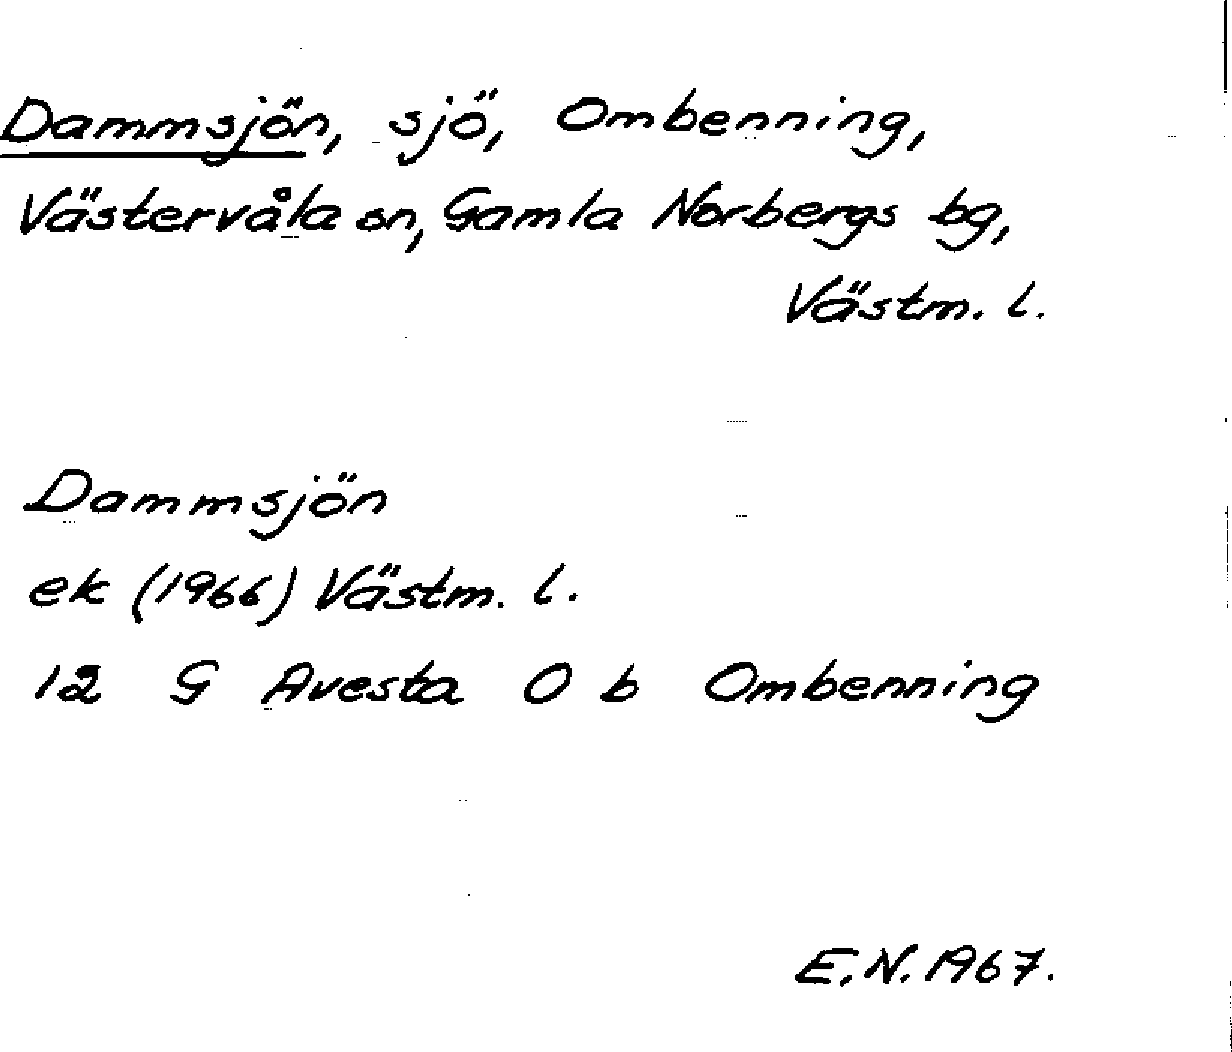 Dammsjön, sjö, Ombenning,
Västervåla sn, Gamla Norbergs bg,
Västm. l.
Dammsjön
ek (1966) Västm. l.
12 G Avesta O b Ombenning
E.N. 1967.